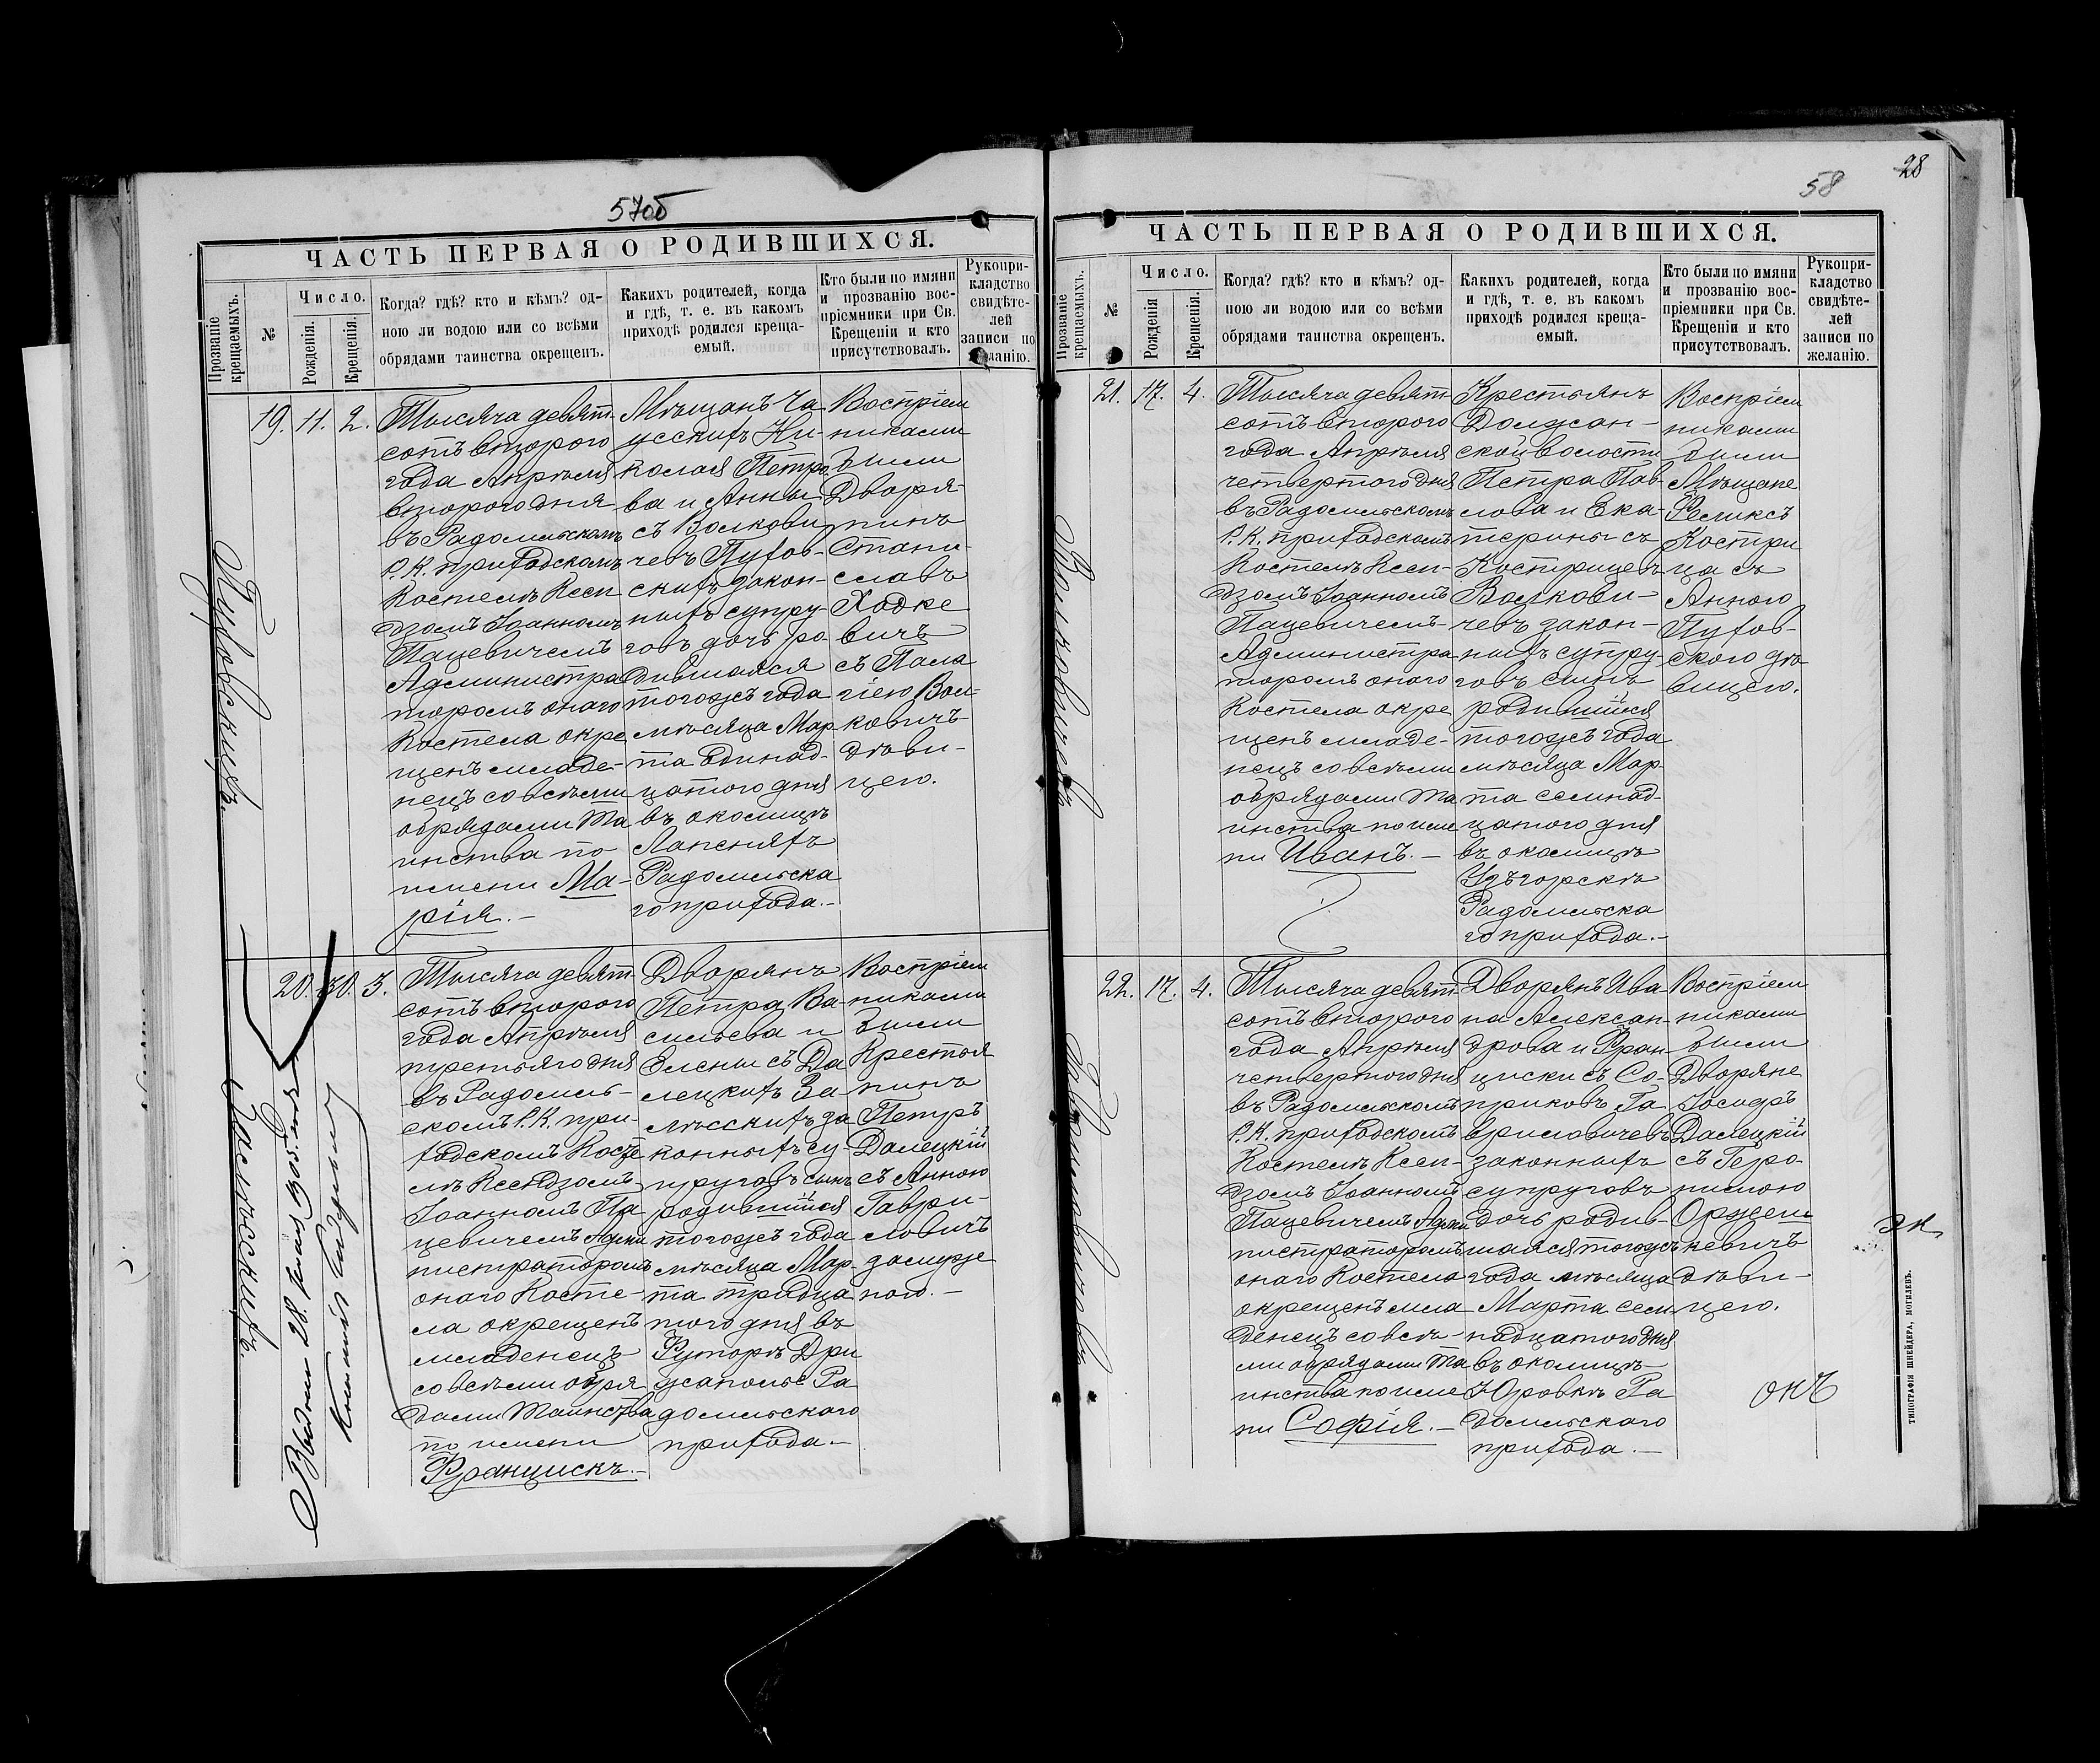 57об
ЧАСТЬ ПЕРВАЯ О РОДИВШИХСЯ.
Прозваніе крещаемыхъ.
№
Число.
Рожденія.
Крещенія.
Когда? гдѣ? кто и кѣмъ? од-
ною ли водою или со всѣми
обрядами таинства окрещенъ.
Какихъ родителей, когда
и гдѣ, т. е. въ какомъ
приходѣ родился креща-
емый.
Кто были по имяни
и прозванію вос-
пріемники при Св.
Крещеніи и кто
присутствовалъ.
Рукопри-
кладство
свидѣте-
лей
записи по
желанію.
Пуховскихъ.
19. 11. 2.
Тысяча девят-
сотъ второго
года Апрѣля
второго дня
въ Радомльскомъ
Р. К. приходскомъ
Костелѣ Ксен
дзомъ Іоанномъ
Пацевичемъ
Администра
торомъ онаго
Костела окре
щенъ младе-
нецъ со всѣми
обрядами Та
инства по
имени Ма-
рія.-
Мѣщанъ Ча
усскихъ Ни-
колая Петро
ва и Анны
съ Волкови
чевъ Пухов-
скихъ закон-
ныхъ супру-
говъ дочь ро-
дившаяся
тогожъ года
мѣсяца Мар
та одинад-
цатого дня
въ околицѣ
Лапеняхъ
Радомльска
го прихода.-
Воспріем
никами
были
Дворя-
нинъ
Стани-
славъ
Ходке
вичъ
съ Пела
гіею Вол-
ковичъ
дѣви-
цею.
Залѣскихъ.
20. 30. 3.
Выдана 28. Іюля 905. года
Тысяча девят-
сотъ второго
года Апрѣля
третьяго дня
въ Радомль-
скомъ Р. К. при-
ходскомъ Косте
лѣ Ксендзомъ
Іоанномъ Па-
цевичемъ Адми
нистраторомъ
онаго Косте-
ла окрещенъ
младенецъ
со всѣми обря
дами Таинства
по имени
Францискъ.-
Дворянъ
Петра Ва-
сильева и
Елены съ Да
лецкихъ За-
лѣсскихъ за
конныхъ су-
пруговъ сынъ
родившійся
тогожъ года
мѣсяца Мар-
та тридца
того дня въ
Хуторѣ Дри
жаполье Ра
домльского
прихода.-
Воспріем
никами
были
Крестья
нинъ
Петръ
Далецкій
съ Анною
Гаври-
ловичъ
замуже
нею.-
58
28
ЧАСТЬ ПЕРВАЯ О РОДИВШИХСЯ.
Прозваніе крещаемыхъ.
№
Число.
Рожденія
Крещенія.
Когда? гдѣ? кто и кѣмъ? од-
ною ли водою или со всѣми
обрядами таинства окрещенъ.
Какихъ родителей, когда
и гдѣ, т. е. въ какомъ
приходѣ родился креща-
емый.
Кто были по имяни
и прозванію вос-
пріемники при Св.
Крещеніи и кто
присутствовалъ.
Рукопри-
кладство
свидѣте-
лей
записи по
желанію.
Волковичевъ
21. 17. 4.
Тысяча девят-
сотъ второго
года Апрѣля
четвертого дня
въ Радомльскомъ
Р. К. приходскомъ
Костелѣ Ксен-
дзомъ Іоанномъ
Пацевичемъ-
Администра
торомъ оного
Костела окре
щенъ младе-
нецъ со всѣми
обрядами Та
инства по име
ни Иванъ.-
Крестьянъ
Должан-
ской волости
Петра Пав-
лова и Ека-
терины съ
Кострицевъ
Волкови-
чевъ закон-
ныхъ супру-
говъ сынъ
родившійся
тогожъ года
мѣсяца Мар
та семнад-
цатого дня
въ околицѣ
Узъгорскѣ
Радомльска
го прихода.-
Воспріем
никами
были
Мѣщане
Феликсъ
Костри
ца съ
Анною
Пухов-
скою дѣ
вицею.
Гавриловичевъ
22. 17. 4.
Тысяча девят-
сотъ второго
года Апрѣля
четвертого дня
въ Радомльскомъ
Р. К. приходскомъ
Костелѣ Ксен-
дзомъ Іоанномъ
Пацевичемъ Адми
нистраторомъ
онаго Костела
окрещенъ мла
денецъ со всѣ-
ми обрядами Та
инства по име
ни Софія.-
Дворянъ Ива-
на Алексан-
дрова и Фран-
циски съ Со-
приковъ Га
вриловичевъ
законныхъ
супруговъ
дочь родив-
шаяся тогожъ
года мѣсяца
Марта сем-
надцатого дня
въ околицѣ
Юровкѣ Ра
домльского
прихода.-
Воспріем
никами
были
Дворяне
Іосифъ
Далецкій
съ Геро-
нимою
Оржеш
кевичъ
дѣви-
цею.
ТИПОГРАФІЯ ШНЕЙДЕРА, МОГИЛЕВЪ.